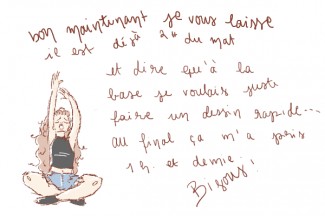 bon maintenant je vous laisse
il est déjà 2H du mat
et dire qu'à la
base je voulais juste
faire un dessin rapide...
au final ça m'a pris
1h et demie.
Bisous!